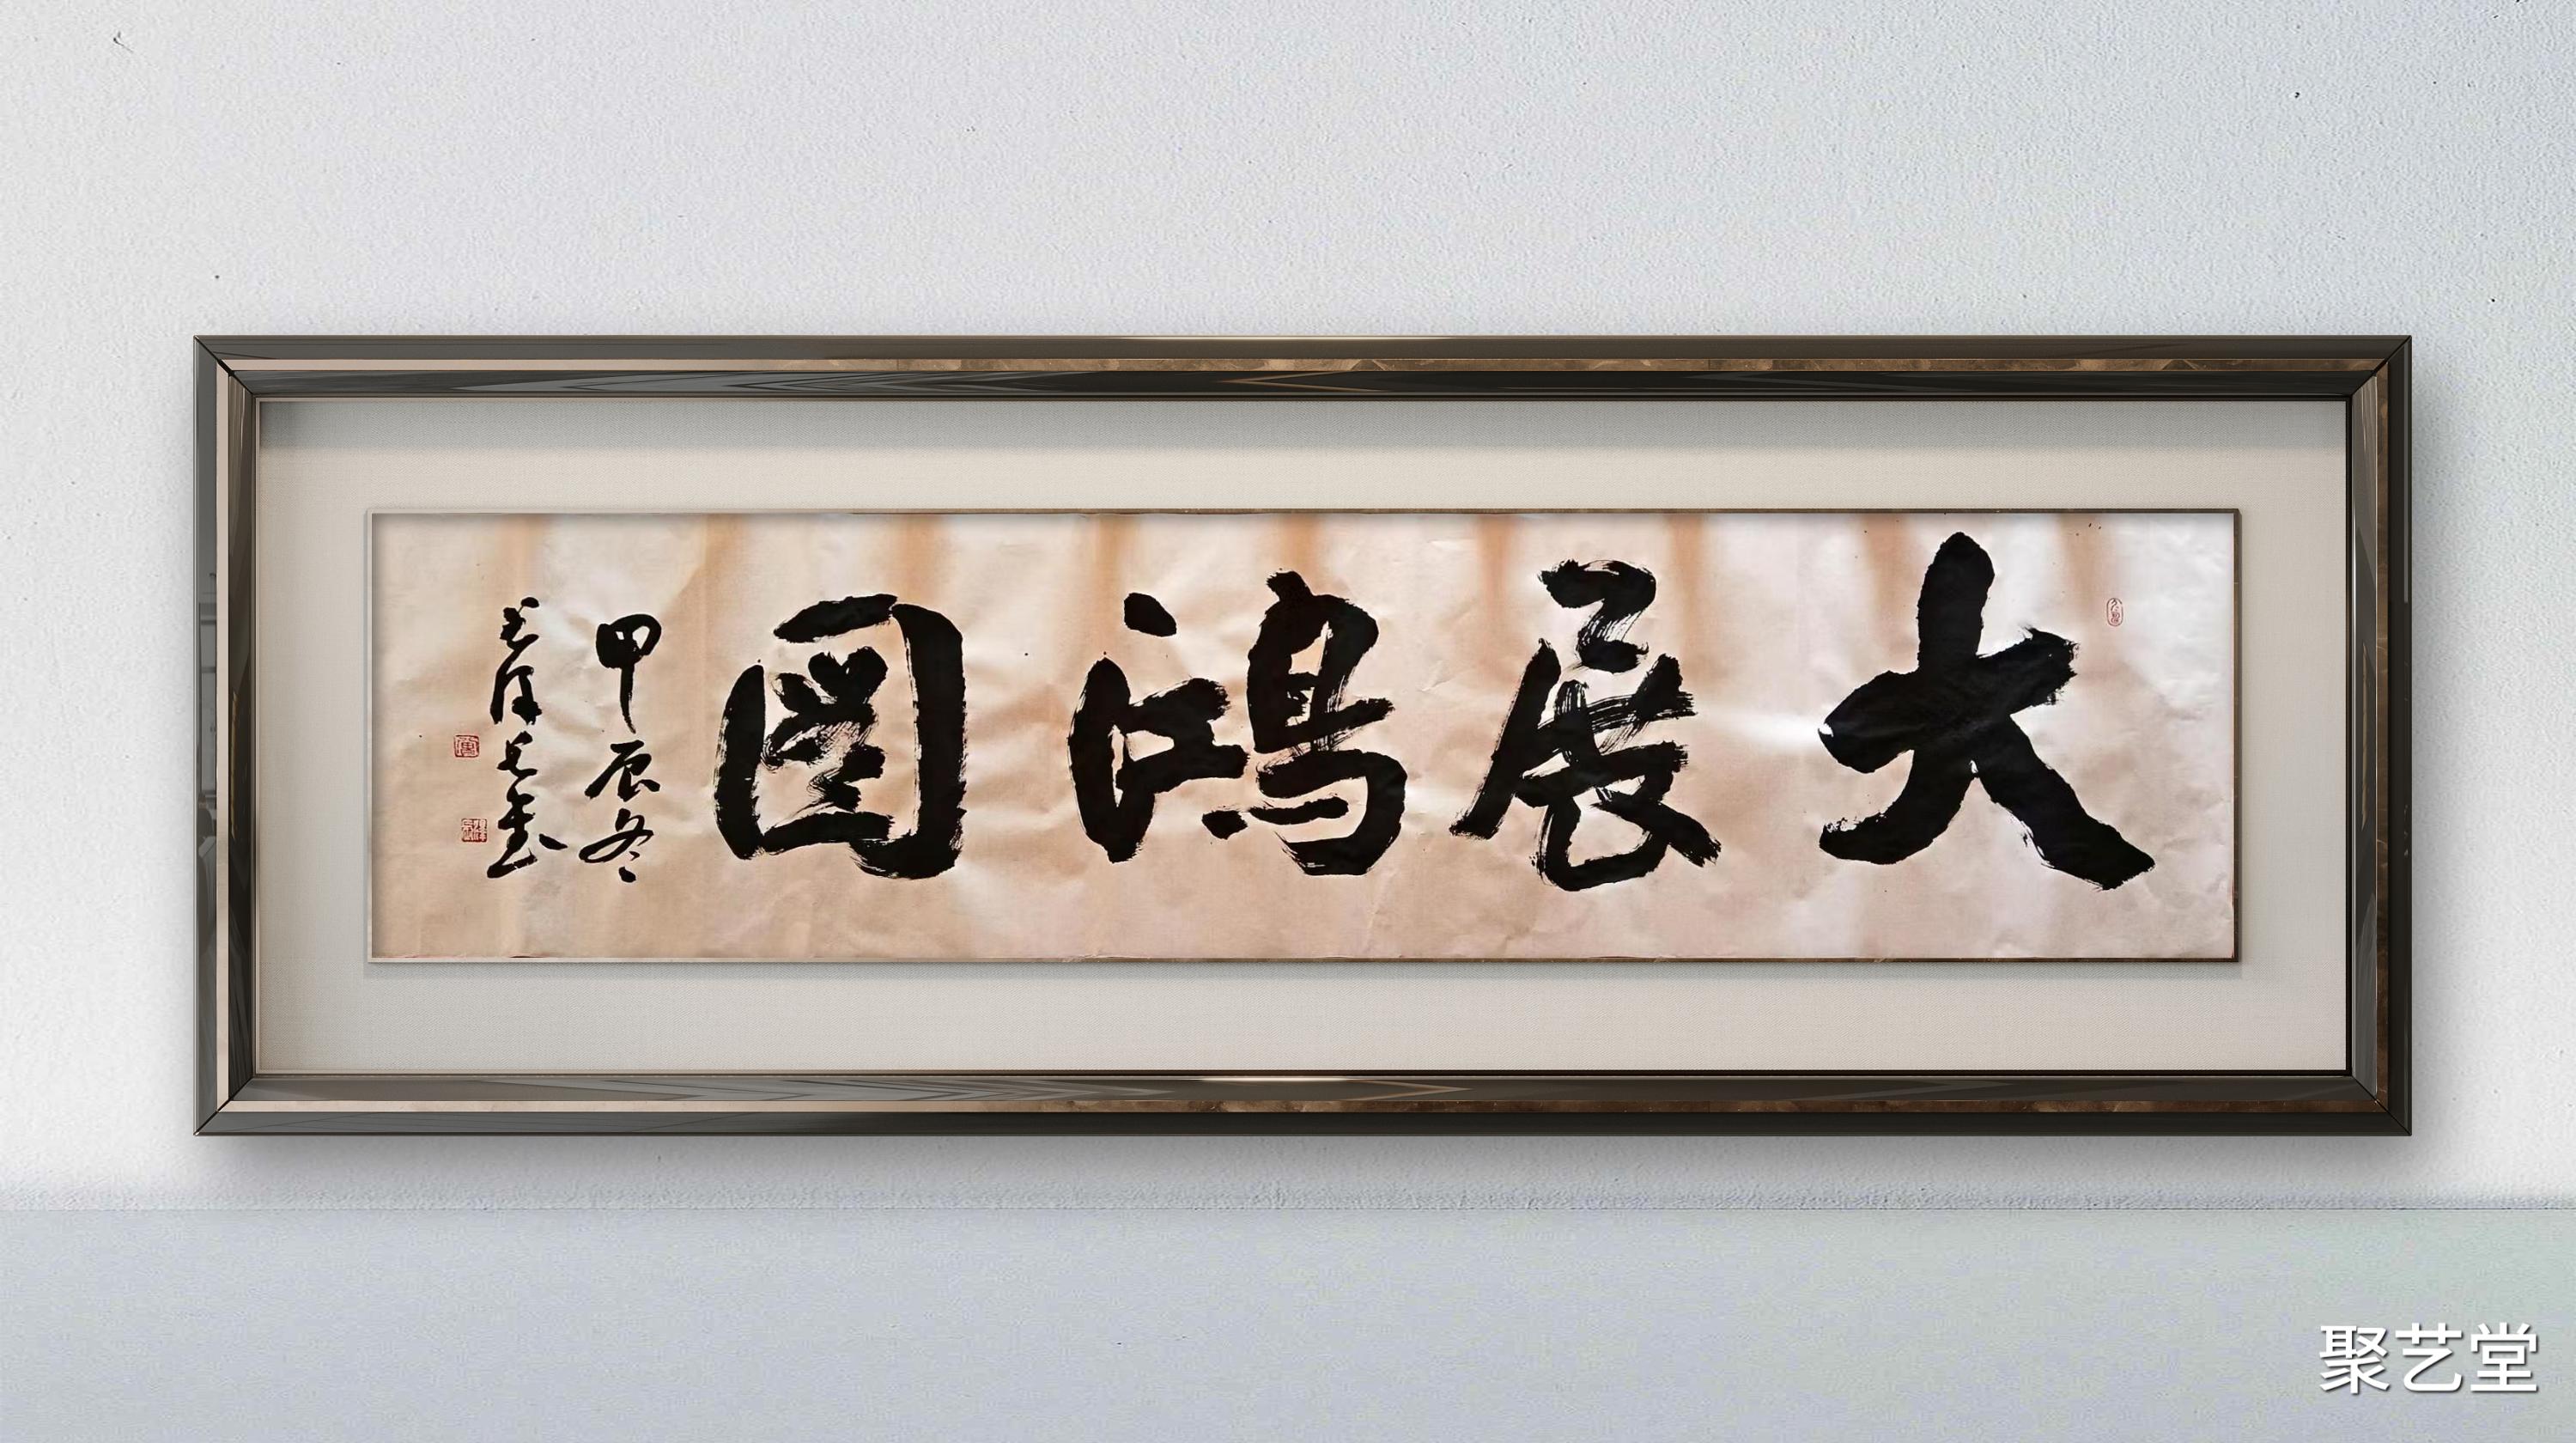 大展鴻圖
甲辰冬
聚艺堂